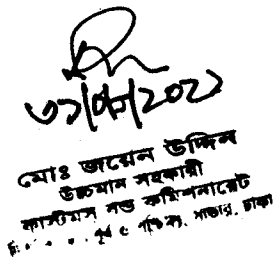 ৩১/০৮/২০২১
মোঃ জয়েন উদ্দিন
উচ্চমান সহকারী
কাস্টমস বন্ড কমিশনারেট
সাভার, ঢাকা